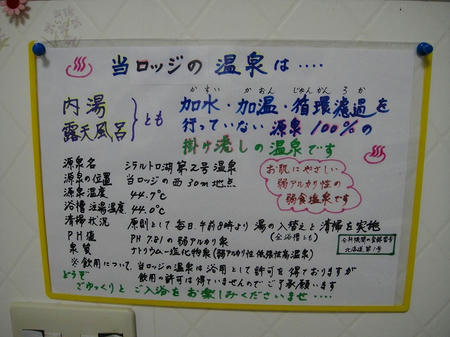 当ロッジの温泉は‥‥
内湯
露天風呂
とも
かすい かおん じゅんかんろか
加水・加温・循環濾過を
行っていない源泉100%の
掛け流しの温泉です
源泉名 シラルトロ湖第2号温泉
源泉の位置 当ロッジの西30m地点
源泉温度 44.7℃
浴槽注湯温度 44.0℃
お肌にやさしい
弱アルカリ性の
弱食塩泉です
清掃状況 原則として毎日、午前8時より湯の入替えと清掃を実施
(全浴槽とも)
PH値 PH 7.81の弱アルカリ泉
泉質 ナトリウム-塩化物泉(弱アルカリ性低張性高温泉)
分析機関の登録番号
北海道第1号
※飲用について、当ロッジの温泉は浴用として許可を得ておりますが
飲用の許可は得ていませんのでご了承願います
どうぞ
ごゆっくりとご入浴をお楽しみくださいませ‥‥